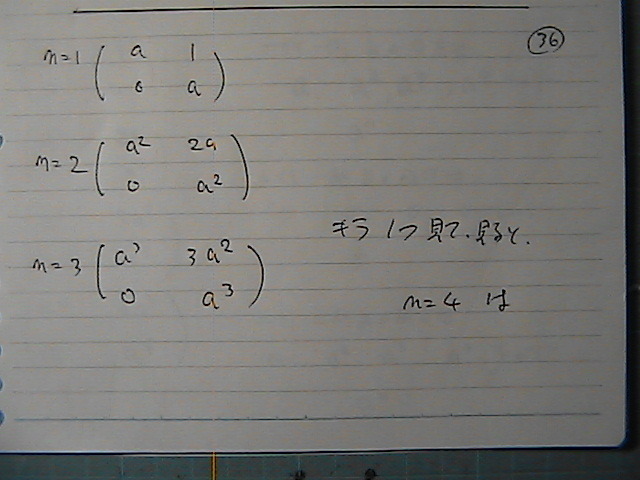 36
n=1 ( a 1
0 a )
n=2 ( a² 2a
0 a² )
n=3 ( a³ 3a²
0 a³ )
キラ 1つ 見て、見ると、
n=4 は